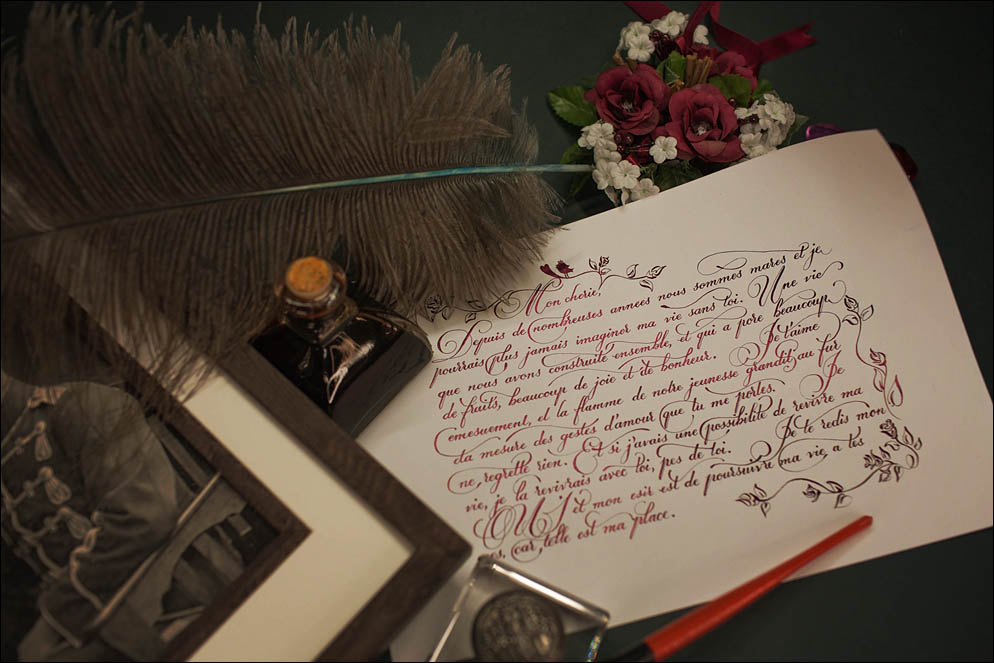 Mon cherie,
Depuis de nombreuses annees nous sommes mares et je
pourrais plus jamais imaginer ma vie sans toi. Une vie
que nous avons construite ensemble, et qui a pore beaucoup
de fruits, beaucoup de joie et de bonheur. Je t'aime
emesuement, et la flamme de notre jeunesse grandit au fur
et a mesure des gestes d'amour que tu me portes. Je
ne regrette rien. Et si j'avais une possibilite de revivre ma
vie, je la revivrais avec toi, pes de toi. Je te redis mon
et mon esir est de poursuivre ma vie, a tes
es, car telle est ma place.